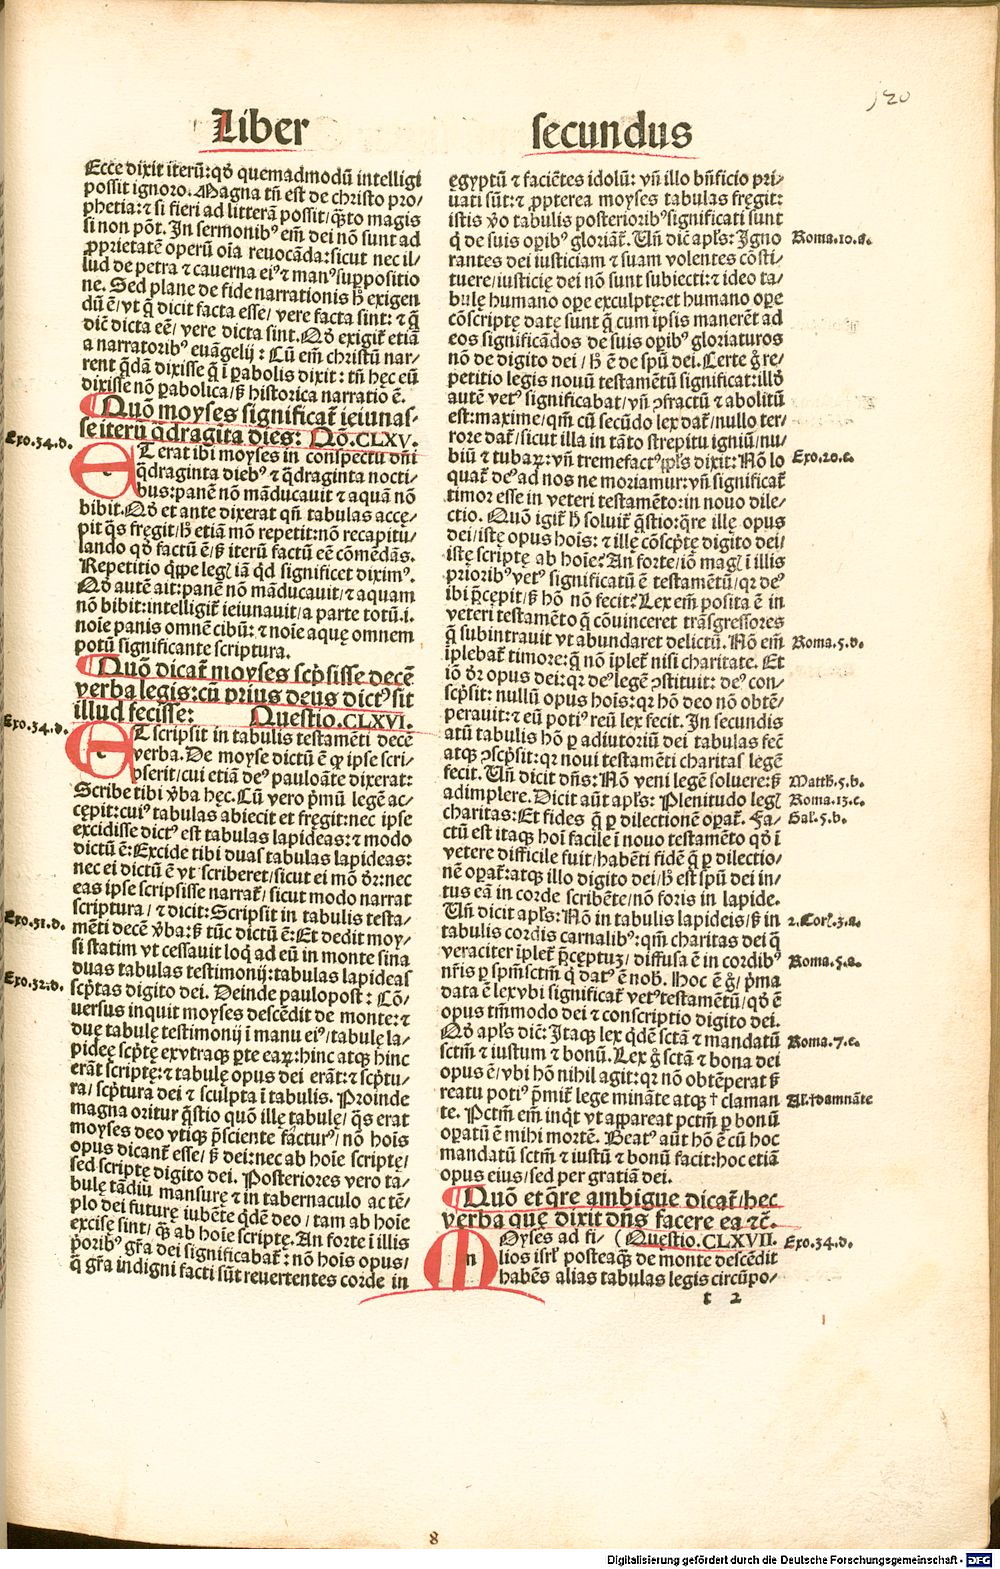 120
Liber secundus
Ecce dixit iterũ: qđ quemadmodũ intelligi
possit ignoro. Magna tñ est de christo pro/
phetia: ⁊ si fieri ad litterã possit/ q̃sto magis
si non põt. In sermonibꝰ em̃ dei nõ sunt ad
ꝓprietatẽ operũ oĩa reuocãda: sicut nec il/
lud de petra ⁊ cauerna eiꝰ ⁊ manꝰ suppositio
ne. Sed plane de fide narrationis hͦ exigen
dũ ẽ/ vt q̃ dicit facta esse/ vere facta sint: ⁊ q̃
diẽ dicta eẽ/ vere dicta sint. Qđ exigit̃ etiã
a narratoribꝰ euãgelij: Cũ em̃ christũ nar/
rent q̃dã dixisse q̃ ĩ ꝑabolis dixit: tñ hęc eũ
dixisse nõ ꝑabolica/ sꝫ historica narratio ẽ.
¶ Quõ moyses significat̃ ieiunas/
se iterũ q̃dragĩta dies: Qõ.CLXV.
Exo.34.d.
ET erat ibi moyses in conspectu dñi
q̃draginta diebꝰ ⁊ q̃draginta nocti/
bus: panẽ nõ mãducauit ⁊ aquã nõ
bibit. Qđ et ante dixerat qñ tabulas accę/
pit q̃s fręgit/ hͦ etiã mõ repetit: nõ recapitu/
lando qđ factũ ẽ/ sꝫ iterũ factũ eẽ cõmẽdãs.
Repetitio q̃ppe legꝭ iã q̃d significet diximꝰ.
Qđ autẽ ait: panẽ nõ mãducauit/ ⁊ aquam
nõ bibit: intelligit̃ ieiunauit/ a parte totũ. i.
noĩe panis omnẽ cibũ: ⁊ noĩe aquę omnem
potũ significante scriptura.
¶ Quõ dicat̃ moyses scp̃sisse decẽ
verba legis: cũ prius deus dictꝰ sit
illud fecisse: Questio.CLXVI.
Exo.34.d.
ET scripsit in tabulis testamẽti decẽ
verba. De moyse dictũ ẽ ꝙ ipse scri/
pserit/ cui etiã deꝰ pauloãte dixerat:
Scribe tibi v̉ba hęc. Cũ vero p̃mũ legẽ ac/
cępit: cuiꝰ tabulas abiecit et fręgit: nec ipse
excidisse dictꝰ est tabulas lapideas: ⁊ modo
dictũ ẽ: Excide tibi duas tabulas lapideas:
nec ei dictũ ẽ vt scriberet/ sicut ei mõ dr̃: nec
eas ipse scripsisse narrat̃/ sicut modo narrat
scriptura/ ⁊ dicit: Scripsit in tabulis testa/
Exo.31.d.
mẽti decẽ v̉ba: sꝫ tũc dictũ ẽ: Et dedit moy/
si statim vt cessauit loq̃ ad eũ in monte sina
duas tabulas testimonij: tabulas lapideas
Exo.32.d.
scp̃tas digito dei. Deinde paulopost: Cõ/
uersus inquit moyses descẽdit de monte: ⁊
duę tabulę testimonij ĩ manu eiꝰ/ tabulę la/
pideę scp̃tę exvtraqꝫ ꝑte eaꝝ: hinc atqꝫ hinc
erãt scriptę: ⁊ tabulę opus dei erãt: ⁊ scp̃tu/
ra/ scp̃tura dei ⁊ sculpta ĩ tabulis. Proinde
magna oritur q̃stio quõ illę tabulę/ q̃s erat
moyses deo vtiqꝫ p̃sciente facturꝰ/ nõ hoĩs
opus dicant̃ esse/ sꝫ dei: nec ab hoĩe scriptę/
sed scriptę digito dei. Posteriores vero ta/
bulę tãdiu mansurę ⁊ in tabernaculo ac tẽ/
plo dei futurę iubẽte q̃dẽ deo/ tam ab hoĩe
excise sint/ q̃ꝫ ab hoĩe scriptę. An forte ĩ illis
p̃oribꝰ gr̃a dei significabat̃: nõ hoĩs opus/
q̃ gr̃a indigni facti sũt reuertentes corde in
ęgyptũ ⁊ faciẽtes idolũ: vñ illo bñficio pri/
uati sũt: ⁊ ꝓpterea moyses tabulas fręgit:
istis v̉o tabulis posterioribꝰ significati sunt
q̃ de suis oꝑibꝰ gloriãt̃. Vñ diẽ apl̃s: Igno Roma.10.a.
rantes dei iusticiam ⁊ suam volentes cõsti/
tuere/ iusticię dei nõ sunt subiecti: ⁊ ideo ta/
bulę humano oꝑe exculptę: et humano oꝑe
cõscriptę datę sunt q̃ cum ip̃sis manerẽt ad
eos significãdos de suis oꝑibꝰ gloriaturos
nõ de digito dei/ hͦ ẽ de spũ dei. Certe g̊ re/
petitio legis nouũ testamẽtũ significat: illđ
autẽ vetꝰ significabat/ vñ ꝯfractũ ⁊ abolitũ
est: maxime/ qm̃ cũ secũdo lex dat̃/ nullo ter/
rore dat̃/ sicut illa in tãto strepitu igniũ/ nu/
biũ ⁊ tubaꝝ: vñ tremefactꝰ ppl̃s dixit: Nõ lo Exo.20.c.
quat̃ deꝰ ad nos ne moriamur: vñ significat̃
timor esse in veteri testamẽto: in nouo dile/
ctio. Quõ igit̃ hͦ soluit̃ q̃stio: q̃re illę opus
dei/ istę opus hoĩs: ⁊ illę cõscp̃tę digito dei/
istę scriptę ab hoĩe? An forte/ iõ magꝭ ĩ illis
prioribꝰ vetꝰ significatũ ẽ testamẽtũ/ qꝛ deꝰ
ibi p̃cępit/ sꝫ hõ nõ fecit? Lex em̃ posita ẽ in
veteri testamẽto q̃ cõuinceret trãsgressores
q̃ subintrauit vt abundaret delictũ. Nõ em̃ Roma.5.d.
ĩplebat̃ timore: q̃ nõ ĩplet̃ nisi charitate. Et
iõ dr̃ opus dei: qꝛ deꝰ legẽ ꝯstituit: deꝰ con/
scp̃sit: nullũ opus hoĩs: qꝛ hõ deo nõ obtẽ/
perauit: ⁊ eũ potiꝰ reũ lex fecit. In secundis
atũ tabulis hõ ꝑ adiutoriũ dei tabulas fec̃
atqꝫ ꝯscp̃sit: qꝛ noui testamẽti charitas legẽ
fecit. Vñ dicit dñs: Nõ veni legẽ soluere: sꝫ Matth.5.b.
adimplere. Dicit aũt apl̃s: Plenitudo legꝭ Roma.13.c.
charitas: Et fides q̃ ꝑ dilectionẽ oꝑat̃. Fa/ Gal.5.b.
ctũ est itaqꝫ hoĩ facile ĩ nouo testamẽto qđ ĩ
vetere difficile fuit/ habẽti fidẽ q̃ ꝑ dilectio/
nẽ oꝑat̃: atqꝫ illo digito dei/ hͦ est spũ dei in/
tus eã in corde scribẽte/ nõ foris in lapide.
Vñ dicit apl̃s: Nõ in tabulis lapideis/ sꝫ in 2.Corꝭ.3.a.
tabulis cordis carnalibꝰ: qm̃ charitas dei q̃
veraciter ĩplet̃ p̃cęptuꝫ/ diffusa ẽ in cordibꝰ Roma.5.a.
nr̃is ꝑ spm̃sctm̃ q̃ datꝰ ẽ nob̃. Hoc ẽ g̊/ p̃ma
data ẽ lex vbi significat̃ vetꝰ testamẽtũ/ qđ ẽ
opus tm̃modo dei ⁊ conscriptio digito dei.
Qđ apl̃s diẽ: Itaqꝫ lex q̃dẽ sctã ⁊ mandatũ Roma.7.c.
sctm̃ ⁊ iustum ⁊ bonũ. Lex g̊ sctã ⁊ bona dei
opus ẽ/ vbi hõ nihil agit: qꝛ nõ obtẽperat sꝫ
reatu potiꝰ p̃mit̃ lege minãte atqꝫ † claman Al.†damnãte
te. Pctm̃ em̃ inq̃t vt appareat pctm̃ ꝑ bonũ
oꝑatũ ẽ mihi mortẽ. Beatꝰ aũt hõ ẽ cũ hoc
mandatũ sctm̃ ⁊ iustũ ⁊ bonũ facit: hoc etiã
opus eius/ sed per gratiã dei.
¶ Quõ et q̃re ambigue dicat̃/ hec
verba quę dixit dñs facere ea ⁊c̃.
MOyses ad fi/ (Questio.CLXVII. Exo.34.d.
lios isrl̃ posteaqꝫ de monte descẽdit
habẽs alias tabulas legis circũpo/
t 2
8
Digitalisierung gefördert durch die Deutsche Forschungsgemeinschaft - DFG